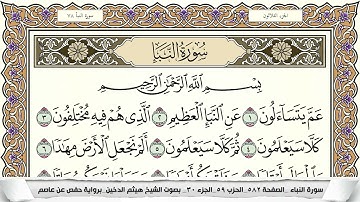 الجزء الثلاثون
سورة النبأ ٧٨
سُورَةُ النَّبَإِ
بِسْمِ اللَّهِ الرَّحْمَٰنِ الرَّحِيمِ
عَمَّ يَتَسَاءَلُونَ ١ عَنِ النَّبَإِ الْعَظِيمِ ٢ الَّذِي هُمْ فِيهِ مُخْتَلِفُونَ ٣
كَلَّا سَيَعْلَمُونَ ٤ ثُمَّ كَلَّا سَيَعْلَمُونَ ٥ أَلَمْ نَجْعَلِ الْأَرْضَ مِهَادًا ٦
سورة النباء _ الصفحة ٥٨٢ _ الحزب ٥٩ _ الجزء ٣٠ _ بصوت الشيخ هيثم الدخين _ برواية حفص عن عاصم